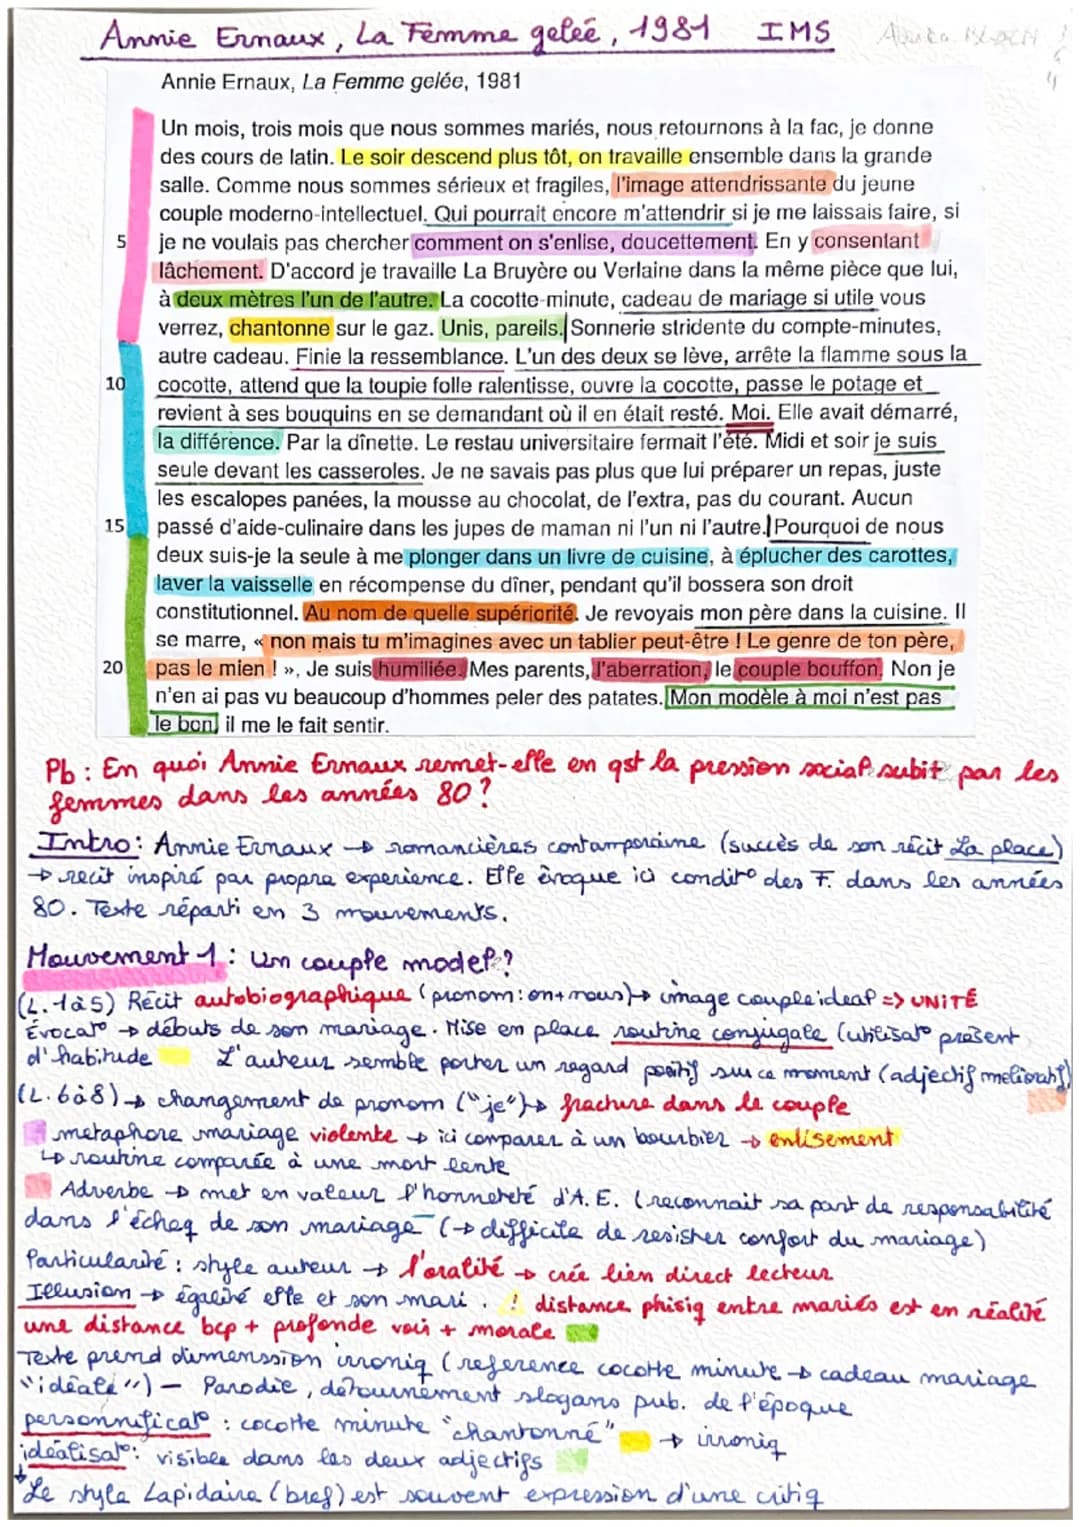 Annie Ernaux, La Femme gelée, 1981 IMS
Annie Ernaux, La Femme gelée, 1981
Un mois, trois mois que nous sommes mariés, nous retournons à la fac, je donne
des cours de latin. Le soir descend plus tôt, on travaille ensemble dans la grande
salle. Comme nous sommes sérieux et fragiles, l'image attendrissante du jeune
couple moderno-intellectuel. Qui pourrait encore m'attendrir si je me laissais faire, si
5 je ne voulais pas chercher comment on s'enlise, doucettement. En y consentant
lâchement. D'accord je travaille La Bruyère ou Verlaine dans la même pièce que lui,
à deux mètres l'un de l'autre. La cocotte-minute, cadeau de mariage si utile vous
verrez, chantonne sur le gaz. Unis, pareils. Sonnerie stridente du compte-minutes,
autre cadeau. Finie la ressemblance. L'un des deux se lève, arrête la flamme sous la
10 cocotte, attend que la toupie folle ralentisse, ouvre la cocotte, passe le potage et
revient à ses bouquins en se demandant où il en était resté. Moi. Elle avait démarré,
la différence. Par la dînette. Le restau universitaire fermait l'été. Midi et soir je suis
seule devant les casseroles. Je ne savais pas plus que lui préparer un repas, juste
les escalopes panées, la mousse au chocolat, de l'extra, pas du courant. Aucun
15 passé d'aide-culinaire dans les jupes de maman ni l'un ni l'autre. Pourquoi de nous
deux suis-je la seule à me plonger dans un livre de cuisine, à éplucher des carottes,
laver la vaisselle en récompense du dîner, pendant qu'il bossera son droit
constitutionnel. Au nom de quelle supériorité. Je revoyais mon père dans la cuisine. Il
se marre, « non mais tu m'imagines avec un tablier peut-être ! Le genre de ton père,
20 pas le mien ! ». Je suis humiliée. Mes parents, l'aberration, le couple bouffon. Non je
n'en ai pas vu beaucoup d'hommes peler des patates. Mon modèle à moi n'est pas
le bon, il me le fait sentir.
Pb : En quoi Annie Ernaux remet-elle en qst la pression social subit par les
femmes dans les années 80 ?
Intro : Annie Ernaux → romancières contamporaine (succès de son récit La place)
→ recit inspiré par propre experience. Elle évoque ici condit° des F. dans les années
80. Texte réparti en 3 mouvements.
Mouvement 1 : Un couple model ?
(L. 1 à 5) Récit autobiographique (pronom : on + nous) → image couple ideal => UNITÉ
Évocat° → débuts de son mariage. Mise en place routine conjugale (utilisat° présent
d'habitude L'auteur semble porter un regard positif sur ce moment (adjectif melioratif)
(L. 6 à 8) → changement de pronom ("je") → fracture dans le couple
metaphore mariage violente → ici comparer à un bourbier → enlisement
↳ routine comparée à une mort lente
Adverbe → met en valeur l'honneteté d'A. E. (reconnait sa part de responsabilité
dans l'écheq de son mariage (→ difficile de resister confort du mariage)
Particularité : style auteur → l'oralité → crée lien direct lecteur
Illusion → égalité elle et son mari. ! distance phisiq entre mariés est en réalité
une distance bcp + profonde voir + morale
Texte prend dimenssion irroniq (reference cocotte minute → cadeau mariage
"idéale") - Parodie, détournement slogans pub. de l'époque
personnificat° : cocotte minute "chantonné" → irroniq
idéalisat° : visible dans les deux adjectifs
↓ Le style Lapidaire (bref) est souvent expression d'une critiq